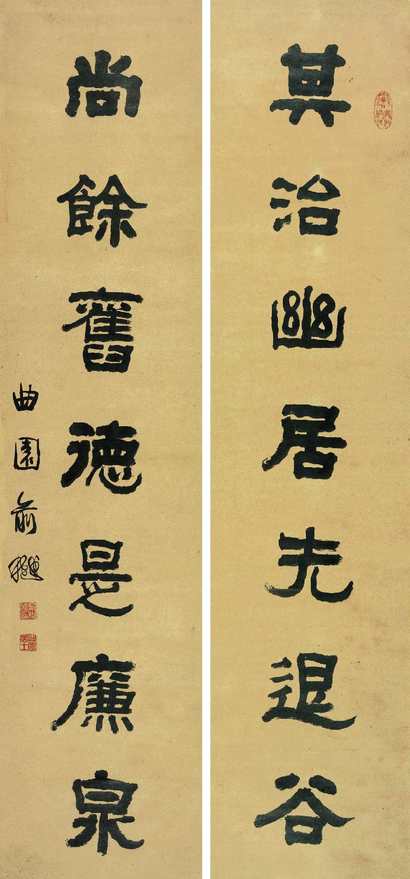 其治幽居先退谷
尚餘舊德是廉泉
曲園俞樾